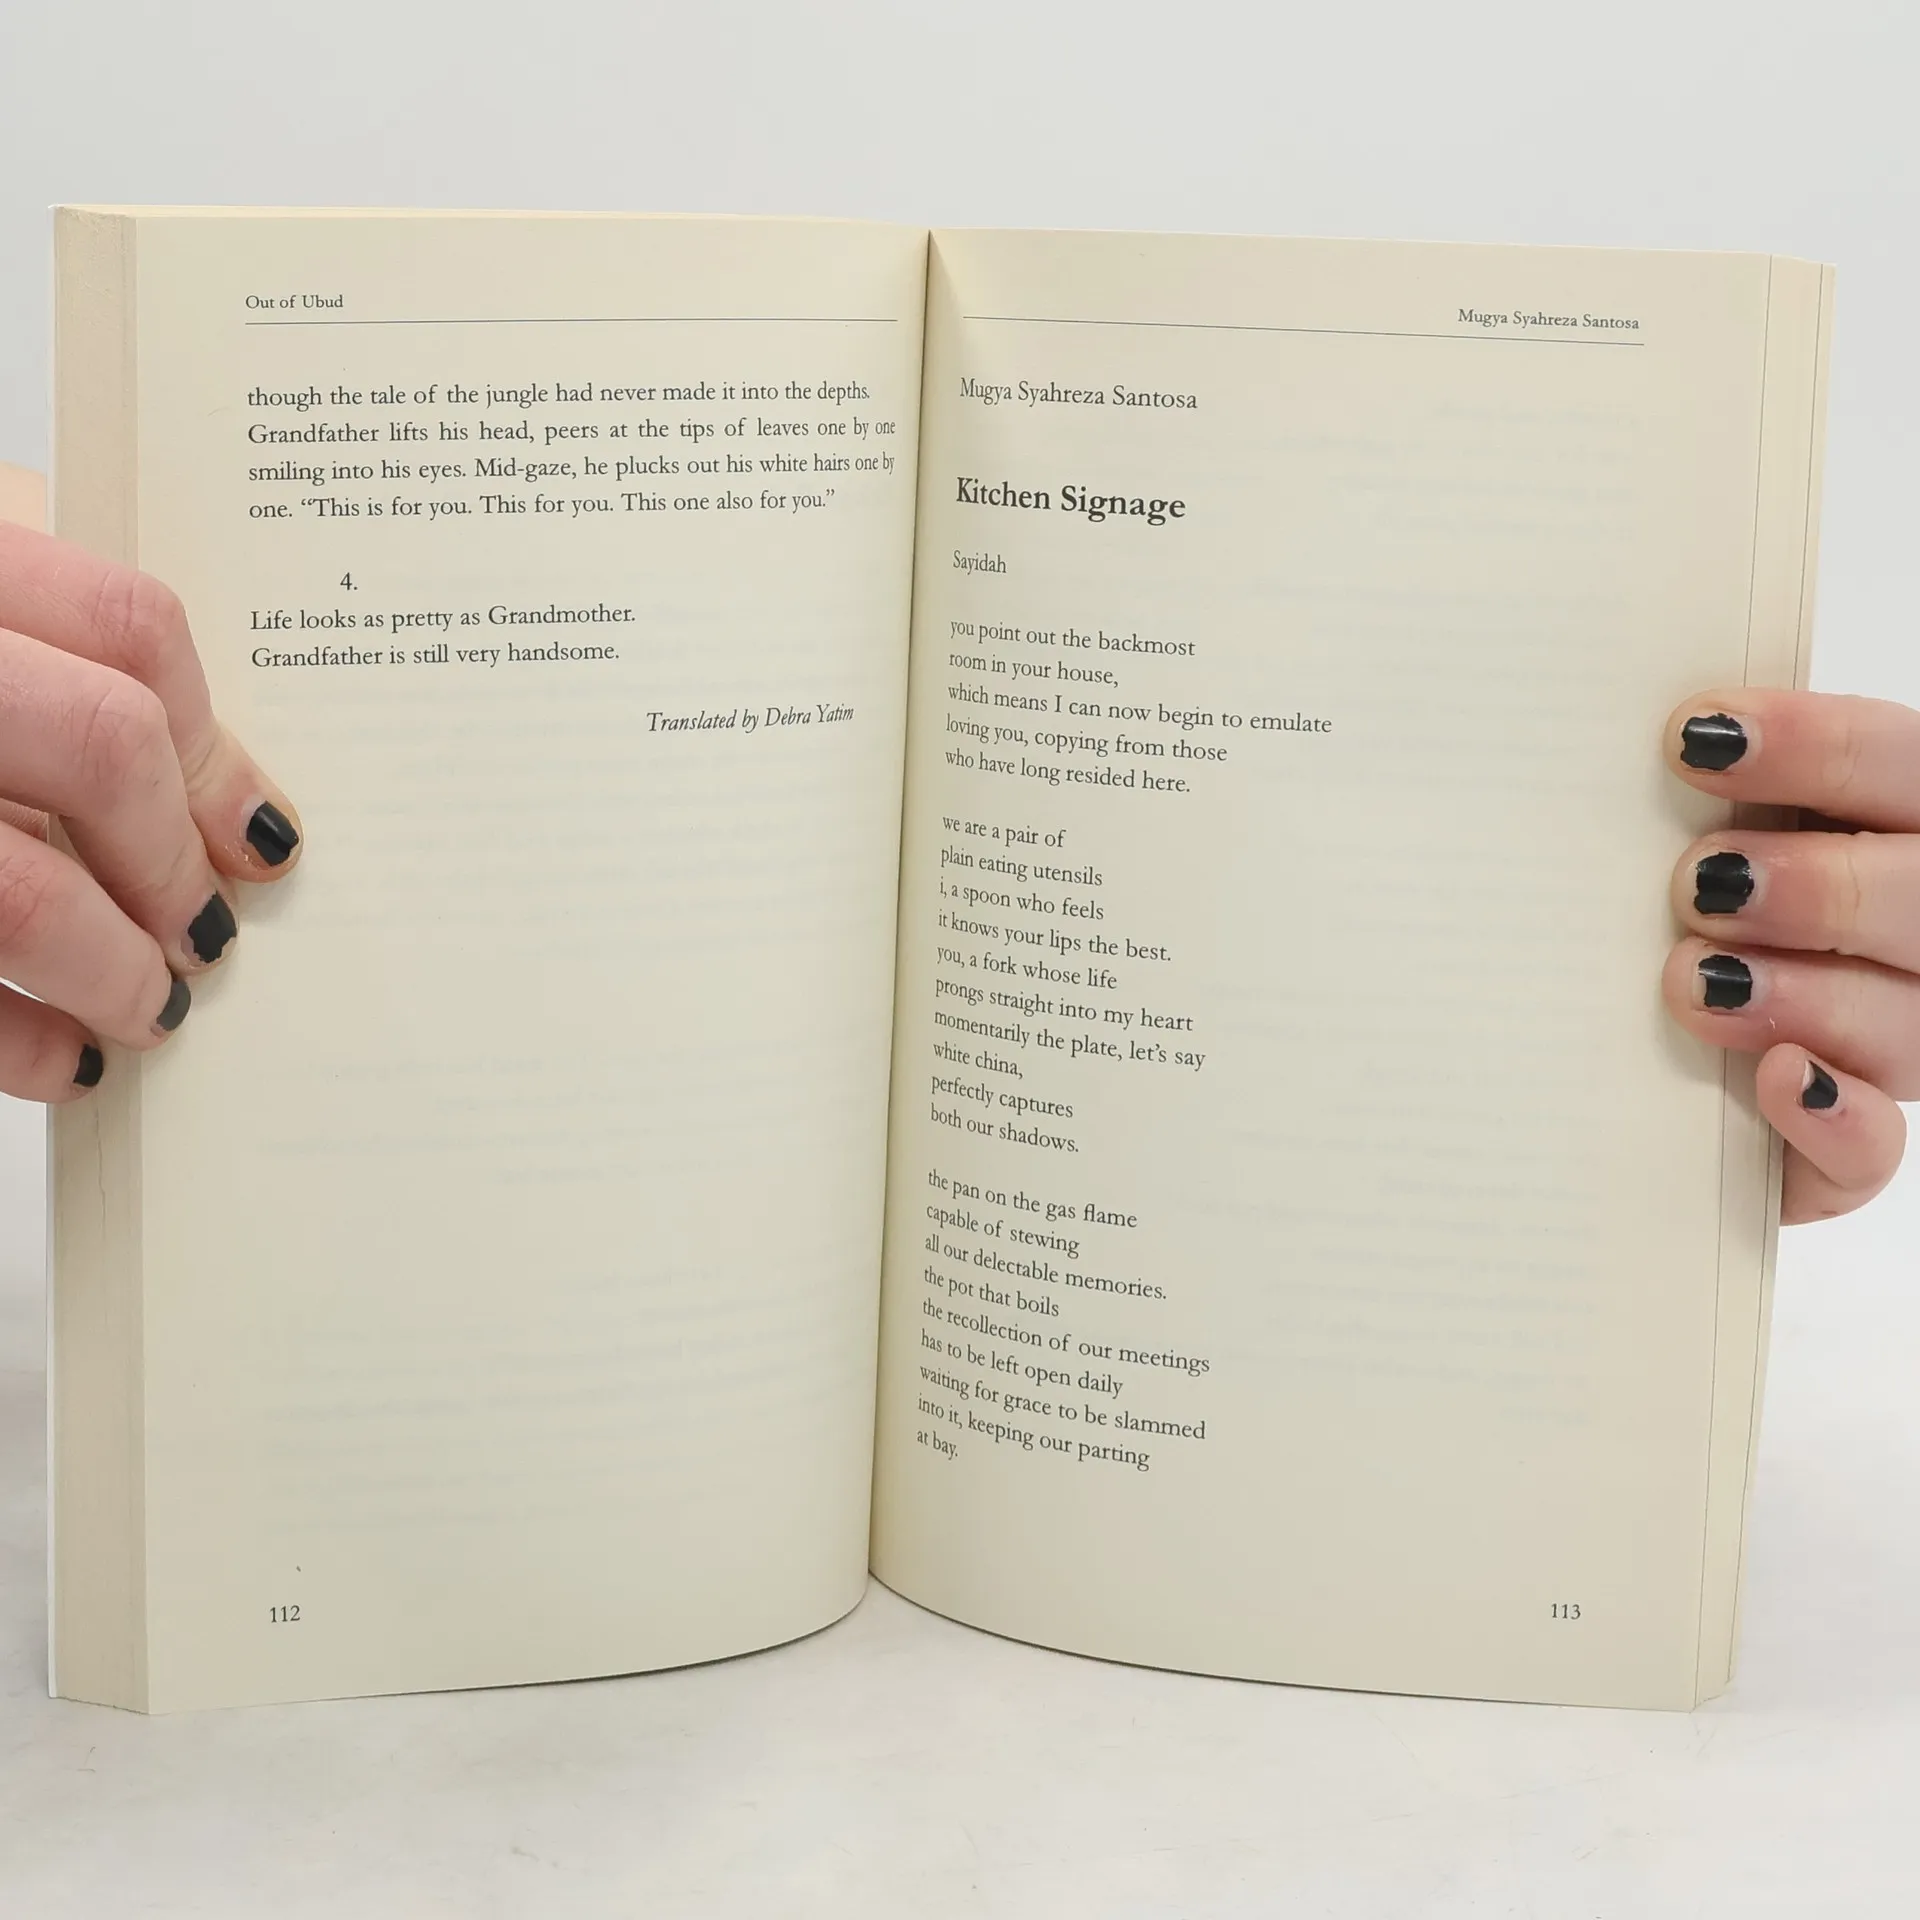 Out of Ubud
though the tale of the jungle had never made it into the depths.
Grandfather lifts his head, peers at the tips of leaves one by one
smiling into his eyes. Mid-gaze, he plucks out his white hairs one by
one. “This is for you. This for you. This one also for you.”
4.
Life looks as pretty as Grandmother.
Grandfather is still very handsome.
Translated by Debra Yatim
112
Mugya Syahreza Santosa
Mugya Syahreza Santosa
Kitchen Signage
Sayidah
you point out the backmost
room in your house,
which means I can now begin to emulate
loving you, copying from those
who have long resided here.
we are a pair of
plain eating utensils
i, a spoon who feels
it knows your lips the best.
you, a fork whose life
prongs straight into my heart
momentarily the plate, let’s say
white china,
perfectly captures
both our shadows.
the pan on the gas flame
capable of stewing
all our delectable memories.
the pot that boils
the recollection of our meetings
has to be left open daily
waiting for grace to be slammed
into it, keeping our parting
at bay.
113